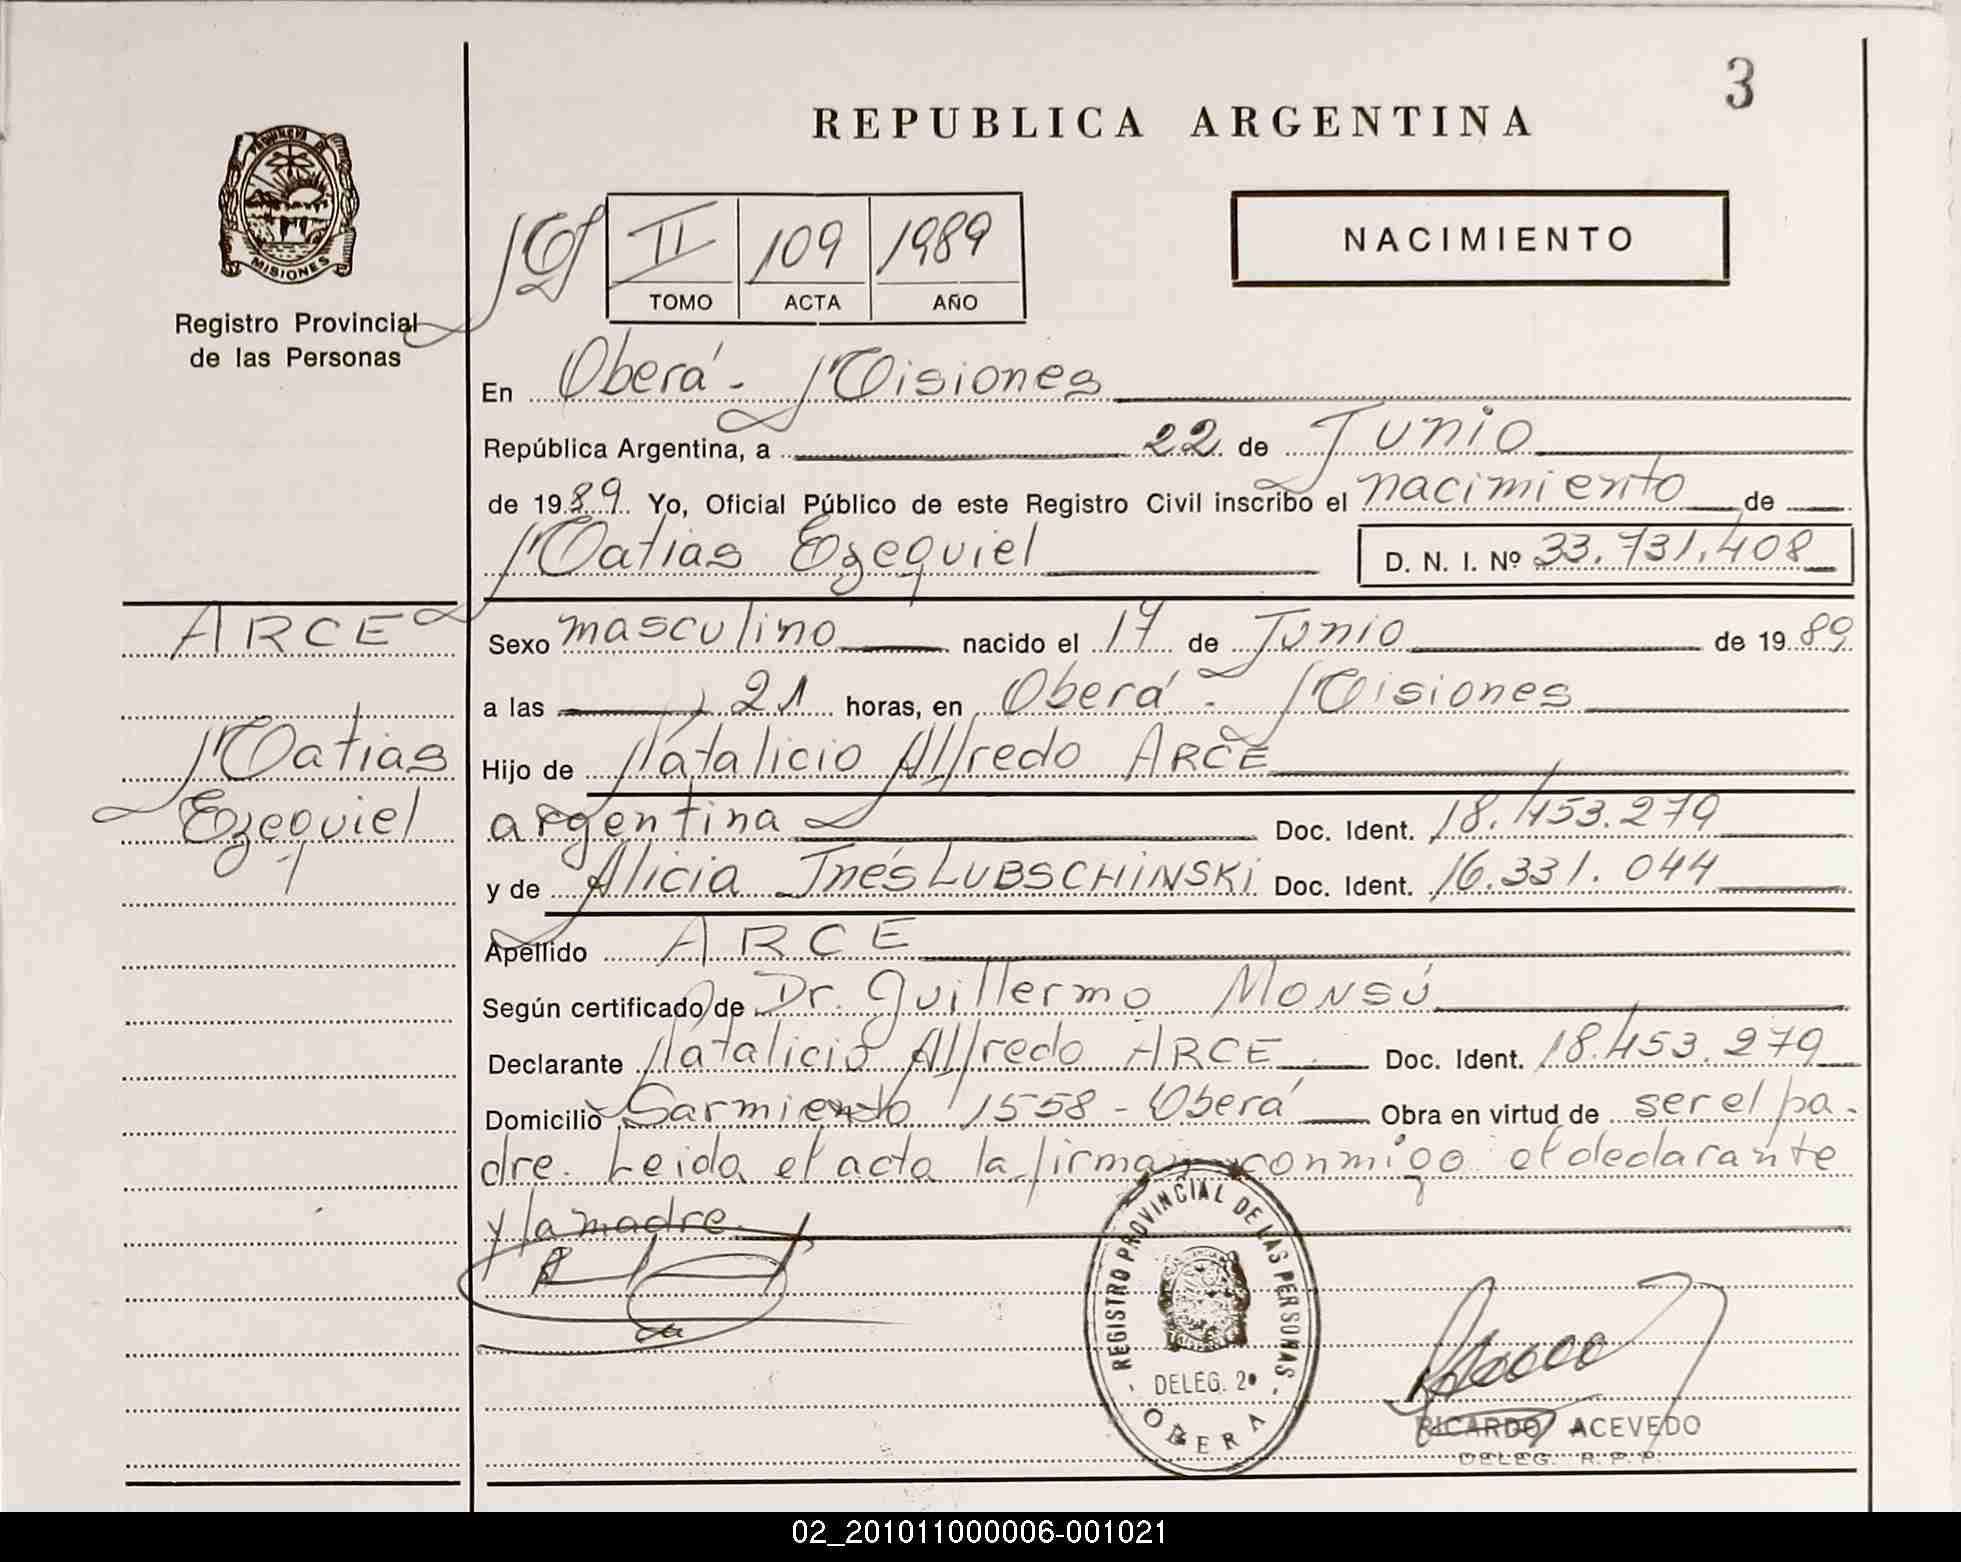 3
REPUBLICA ARGENTINA
PROVINCIA DE
MISIONES
Registro Provincial
de las Personas
II 109 1989
TOMO ACTA AÑO
NACIMIENTO
En Oberá - Misiones
República Argentina, a 22 de Junio
de 1989 Yo, Oficial Público de este Registro Civil inscribo el nacimiento de
Matias Ezequiel D. N. I. Nº 33.731.408
ARCE
Matias
Ezequiel
Sexo masculino nacido el 17 de Junio de 1989
a las 21 horas, en Oberá - Misiones
Hijo de Natalicio Alfredo ARCE
argentina Doc. Ident. 18.453.279
y de Alicia Inés LUBSCHINSKI Doc. Ident. 16.331.044
Apellido ARCE
Según certificado de Dr. Guillermo MONSÚ
Declarante Natalicio Alfredo ARCE Doc. Ident. 18.453.279
Domicilio Sarmiento 1558 - Oberá Obra en virtud de ser el pa-
dre. Leida el acta la firman conmigo el declarante
y la madre.
REGISTRO PROVINCIAL DE LAS PERSONAS
DELEG. 2º
OBERA
RICARDO ACEVEDO
DELEG. R.P.P.
02_201011000006-001021